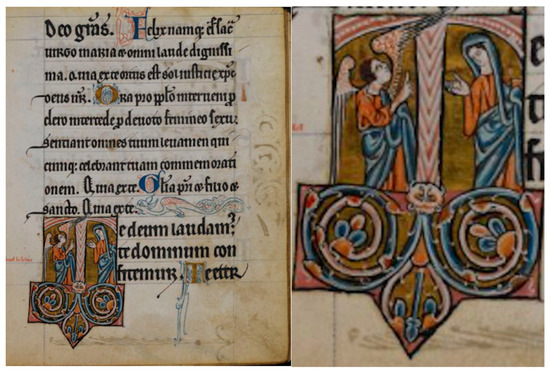 Deo grās. Felix namq; es sac̄
uirgo maria & omni laude dignissi
ma. q̄ia ex te ortus est sol iusticie xp̄c
deus nr̄. Ora pro pp̄lo interueni p
clero intercede p deuoto femineo sexu.
sentiant omnes tuum leuamen qui
cumq; celebrant tuam commemorati
onem. Q̄ia ex te. Glīa pr̄i & filio &
sancto. Q̄ia ex te.
Te deum laudam᷒
te dominum con
fitemur. Te et̄r